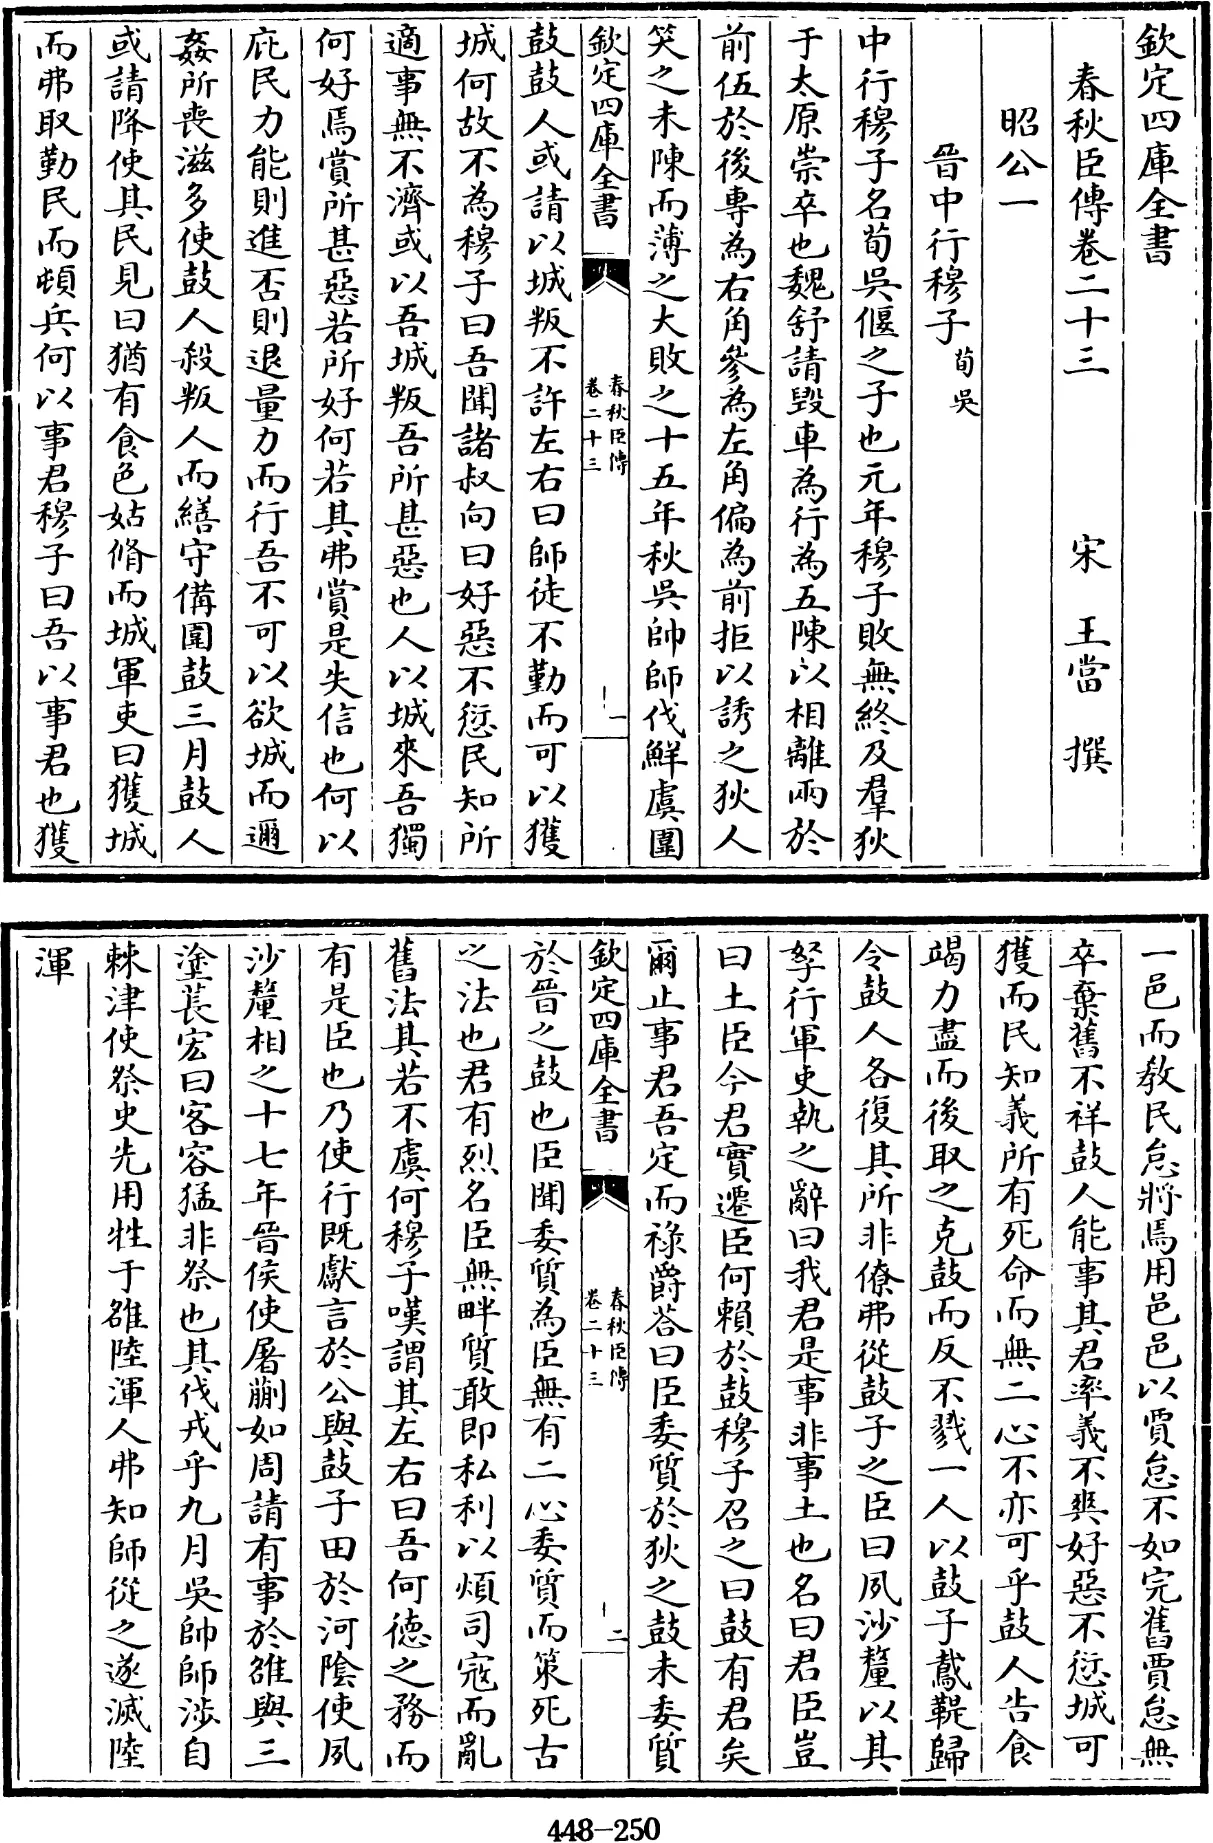 欽定四庫全書
春秋臣傳卷二十三　宋　王當　撰
昭公一
晉中行穆子荀吳
中行穆子名荀吳偃之子也元年穆子敗無終及羣狄
于太原崇卒也魏舒請毀車為行為五陳以相離兩於
前伍於後專為右角參為左角偏為前拒以誘之狄人
笑之未陳而薄之大敗之十五年秋吳帥師伐鮮虞圍
欽定四庫全書
春秋臣傳
卷二十三
一
鼓鼓人或請以城叛不許左右曰師徒不勤而可以獲
城何故不為穆子曰吾聞諸叔向曰好惡不愆民知所
適事無不濟或以吾城叛吾所甚惡也人以城來吾獨
何好焉賞所甚惡若所好何若其弗賞是失信也何以
庇民力能則進否則退量力而行吾不可以欲城而邇
姦所喪滋多使鼓人殺叛人而繕守備圍鼓三月鼓人
或請降使其民見曰猶有食色姑脩而城軍吏曰獲城
而弗取勤民而頓兵何以事君穆子曰吾以事君也獲
一邑而教民怠將焉用邑邑以賈怠不如完舊賈怠無
卒棄舊不祥鼓人能事其君率義不爽好惡不愆城可
獲而民知義所有死命而無二心不亦可乎鼓人告食
竭力盡而後取之克鼓而反不戮一人以鼓子鳶鞮歸
令鼓人各復其所非僚弗從鼓子之臣曰夙沙釐以其
孥行軍吏執之辭曰我君是事非事土也名曰君臣豈
曰土臣今君實遷臣何賴於鼓穆子召之曰鼓有君矣
爾止事君吾定而祿爵荅曰臣委質於狄之鼓未委質
欽定四庫全書
春秋臣傳
卷二十三
二
於晉之鼓也臣聞委質為臣無有二心委質而策死古
之法也君有烈名臣無畔質敢即私利以煩司寇而亂
舊法其若不虞何穆子嘆謂其左右曰吾何德之務而
有是臣也乃使行既獻言於公與鼓子田於河陰使夙
沙釐相之十七年晉侯使屠蒯如周請有事於雒與三
塗萇宏曰客容猛非祭也其伐戎乎九月吳帥師涉自
棘津使祭史先用牲于雒陸渾人弗知師從之遂滅陸
渾
448-250